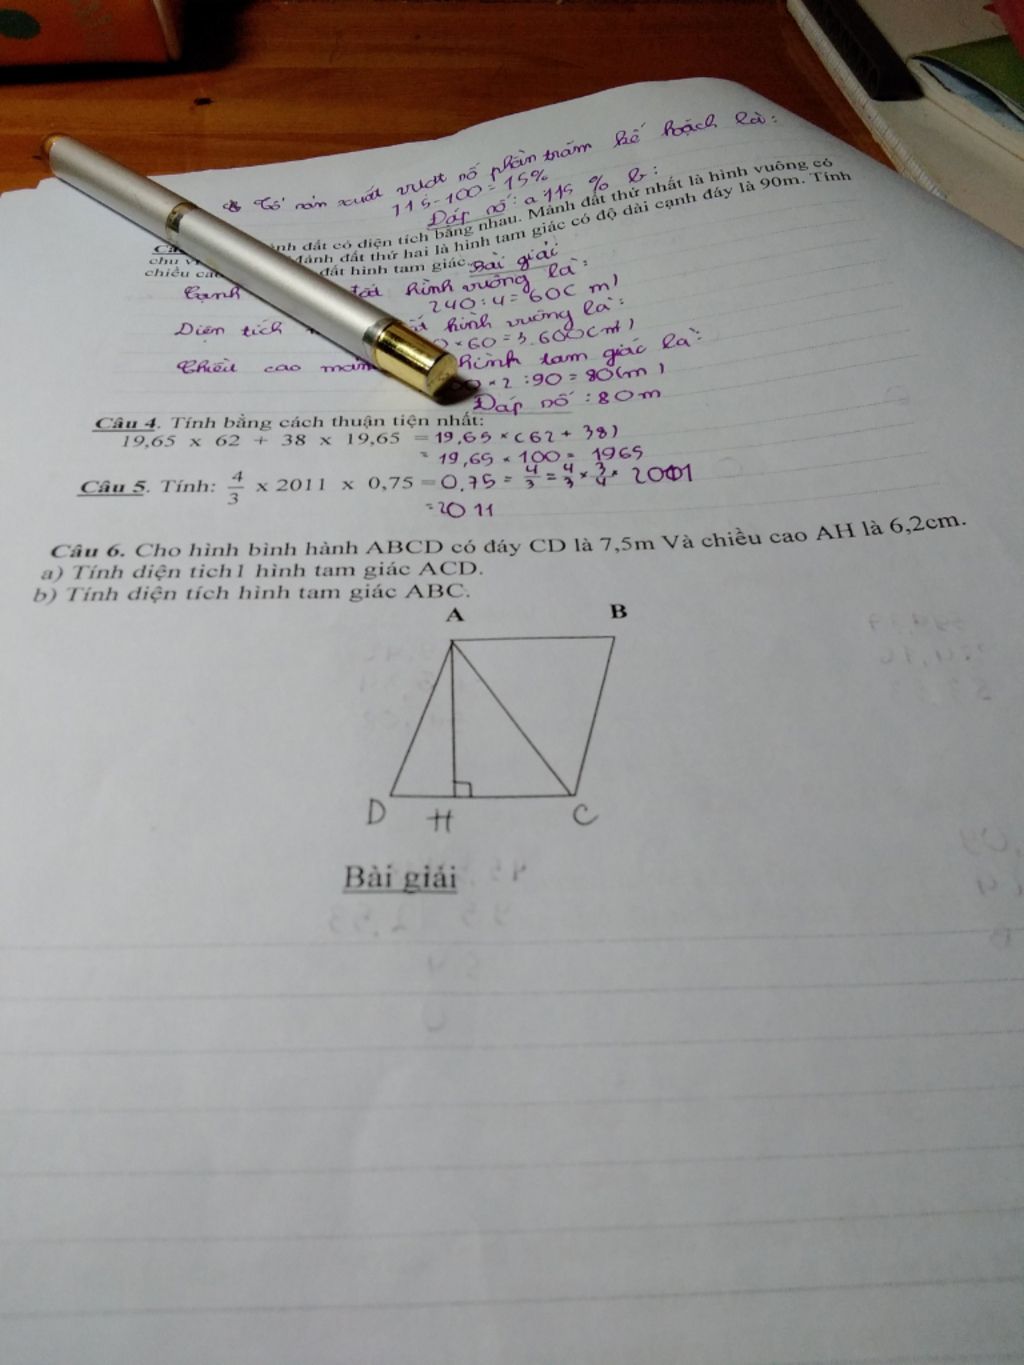 Tổ sản xuất vượt số phần trăm kế hoạch là:
115-100=15%
Đáp số: a 115 % b:
ảnh đất có diện tích bằng nhau. Mảnh đất thứ nhất là hình vuông có
chu v Mảnh đất thứ hai là hình tam giác có độ dài cạnh đáy là 90m. Tính
chiều ca đất hình tam giác.
Bài giải
Cạnh đất hình vuông là:
240:4=60( m)
Diện tích hình vuông là:
×60=3.600(m²)
Chiều cao mản hình tam giác là:
×2:90=80(m)
Đáp số:80m
Câu 4. Tính bằng cách thuận tiện nhất:
19,65 x 62 + 38 x 19,65 = 19,65 ×(62+ 38)
= 19,65 × 100= 1965
Câu 5. Tính: 4/3 x 2011 x 0,75 = 0,75 = 4/3 = 4/3 × 3/4 × 2011
=2011
Câu 6. Cho hình bình hành ABCD có đáy CD là 7,5m Và chiều cao AH là 6,2cm.
a) Tính diện tich1 hình tam giác ACD.
b) Tính diện tích hình tam giác ABC.
A B
D H C
Bài giải